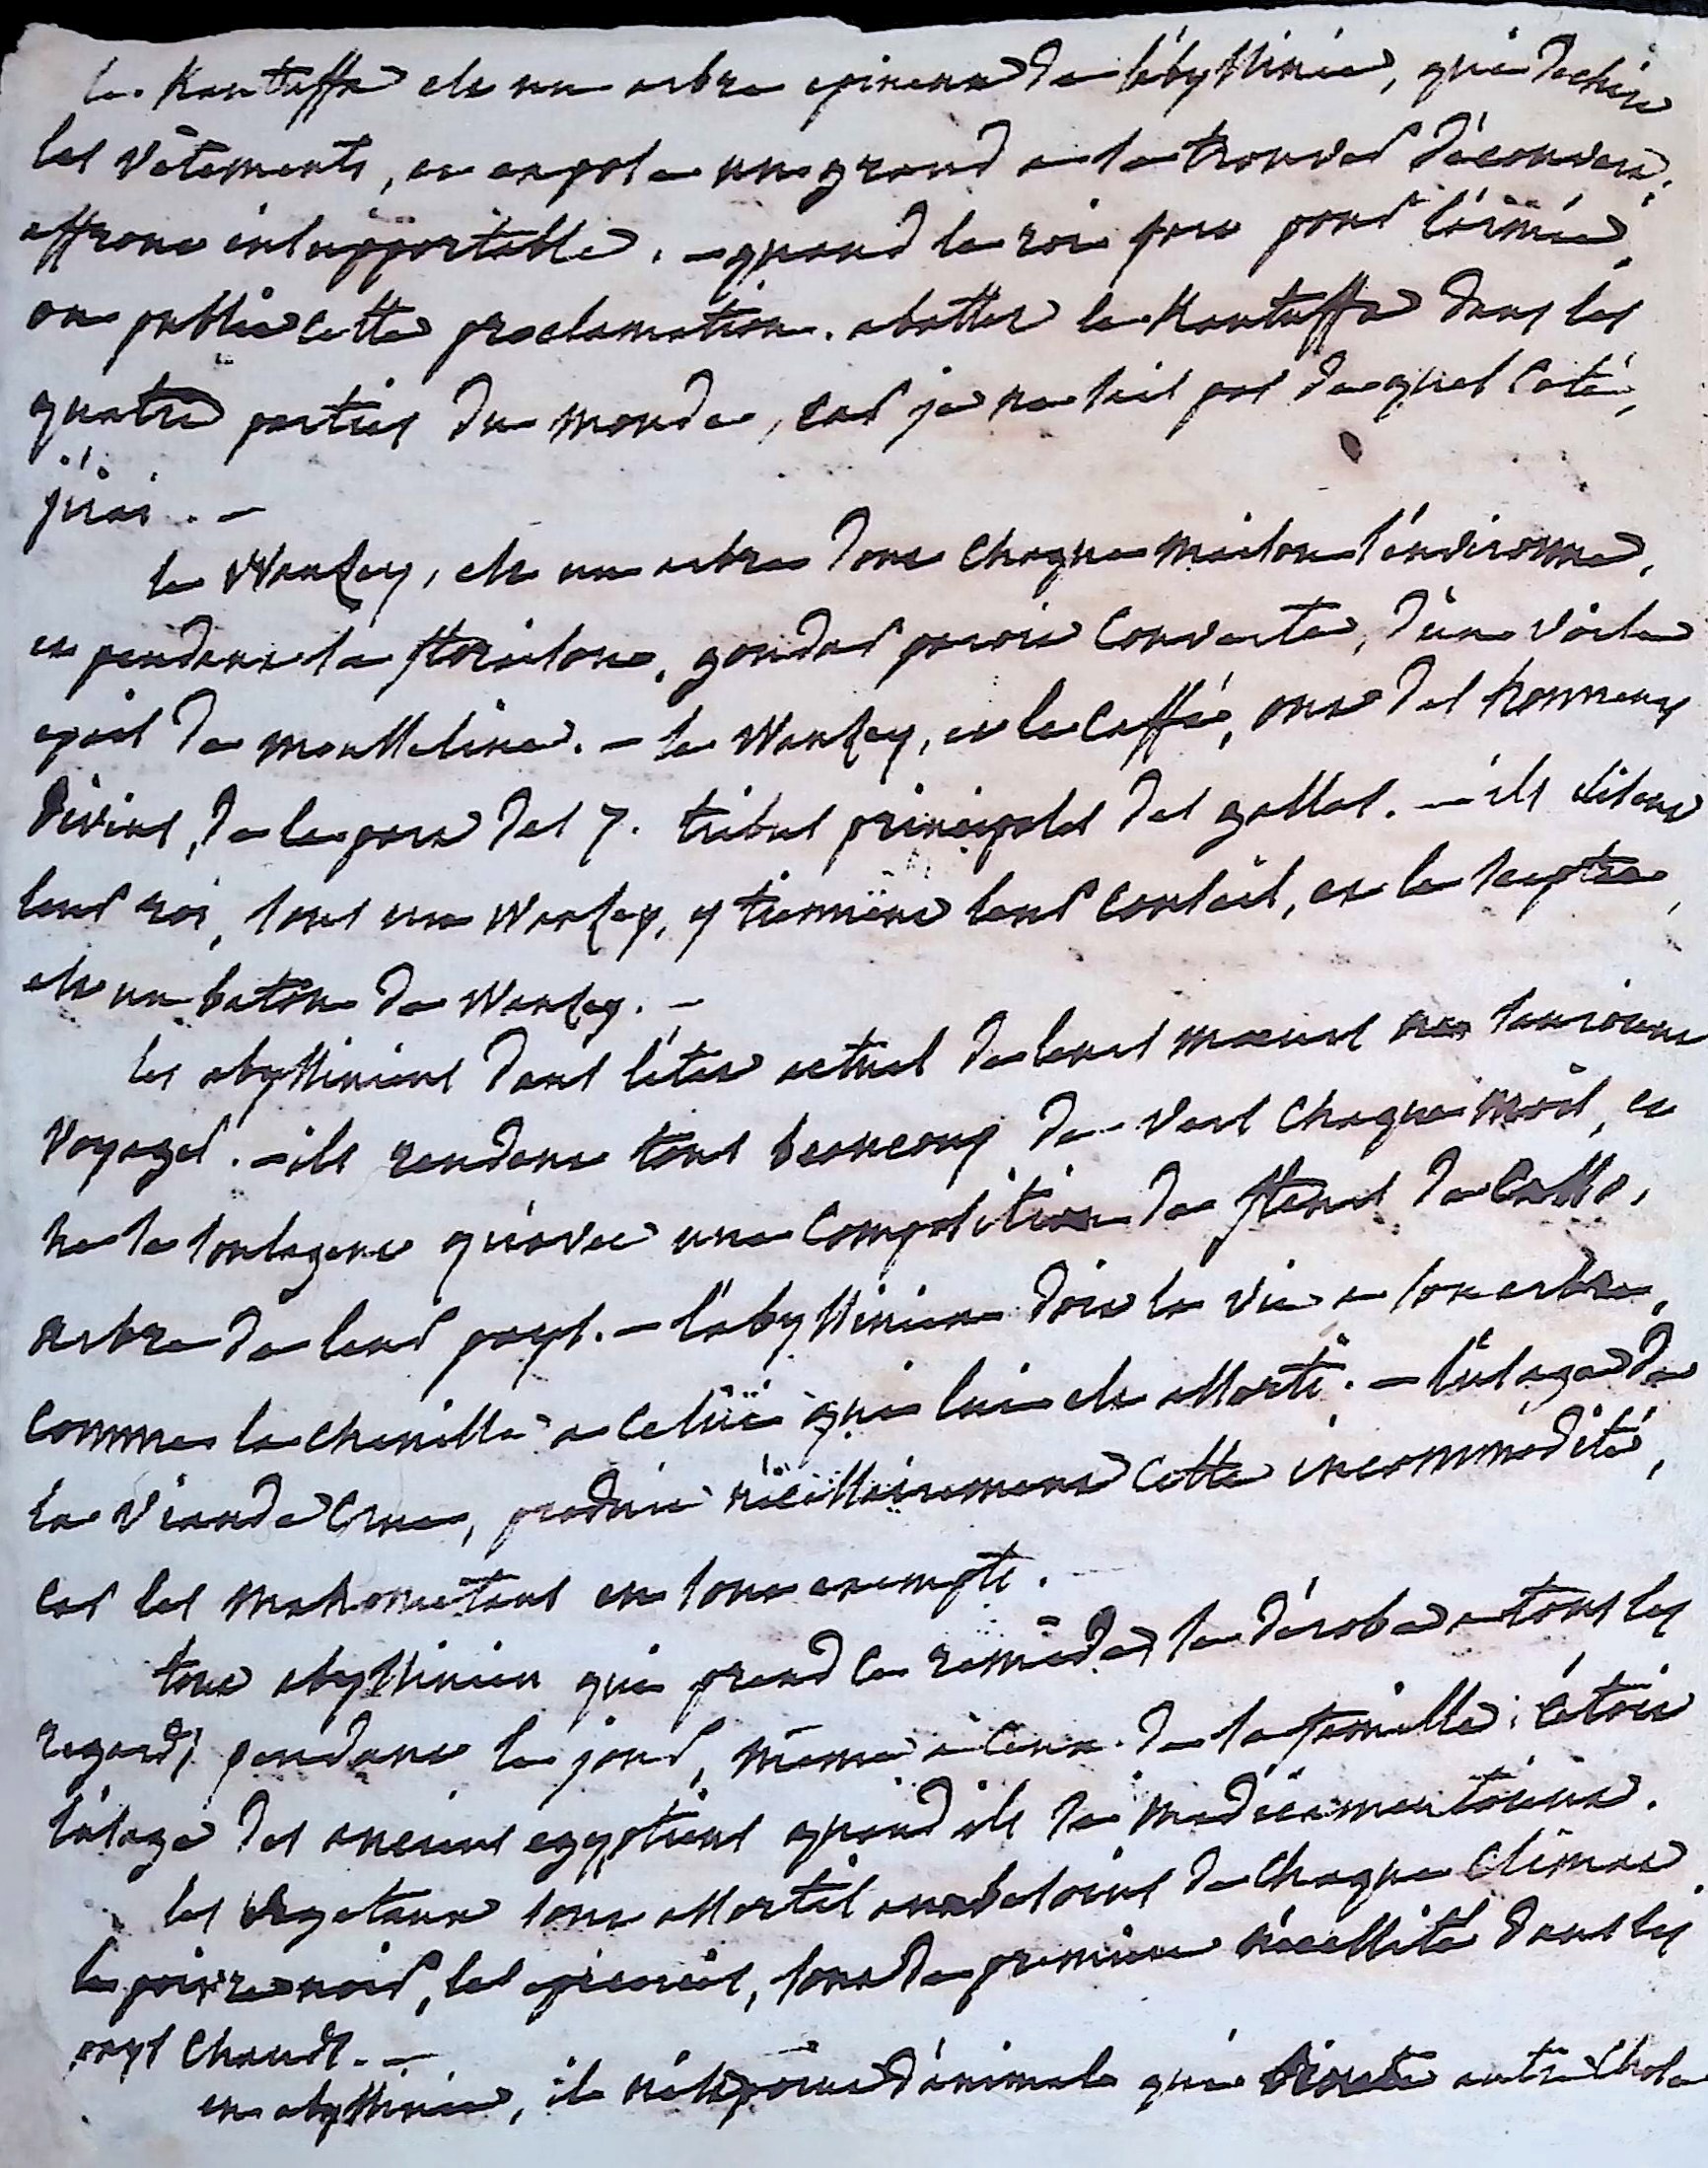 le Kantuffa est un arbre epineux de l'abyssinie, qui dechire
les vêtements, et expose un grand a se trouver découvert,
affront insupportable. - quand le roi part pour l'armée,
on publie cette proclamation. abattez le Kantuffa dans les
quatre parties du monde, car je ne sais pas de quel coté,
j'irai. -
le Wanzey, est un arbre dont chaque maison s'environne,
et pendant sa floraison, gondar paroit couverte, d'un voile
epais de mousseline. - le Wanzey, et le caffé, ont des honneurs
divins, de la part des 7. tribus principales des gallas. - ils elisent
leur roi, sous un Wanzey, y tiennent leur conseil, et le sceptre,
est un baton de Wanzey. -
les abyssiniens dans l'état actuel de leurs moeurs
voyager. - ils rendent tous beaucoup de vers chaque mois, et
ne se soulagent qu'avec une composition de fleurs de Cusso,
arbre de leur pays. - l'abyssinien doit la vie a son arbre,
comme la chenille a celui qui lui est assorti. - l'usage de
la viande crue, produit nécessairement cette incommodité,
car les mahometans en sont exempts.
tout abyssinien qui prend ce remède, se dérobe a tous les
regards pendant le jour, même à ceux de sa famille; c'étoit
l'usage des anciens egyptiens quand ils se médicamentoient.
les vegetaux sont assortis aux besoins de chaque climat.
le poivre noir, les epiceries, sont de premiere nécessité dans les
pays chauds. -
en abyssinie, il n'est point d'animal qui autre chose